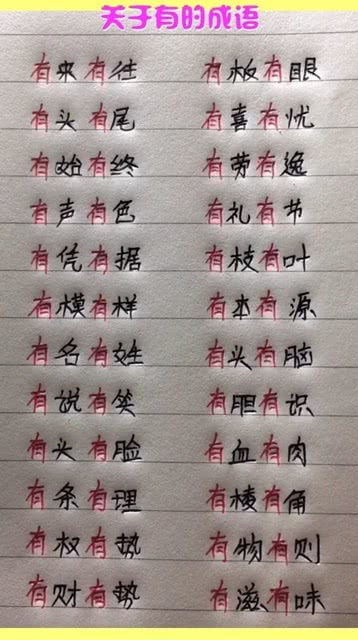 关于有的成语
有来有往 有板有眼
有头有尾 有喜有忧
有始有终 有劳有逸
有声有色 有礼有节
有凭有据 有枝有叶
有模有样 有本有源
有名有姓 有头有脑
有说有笑 有胆有识
有头有脸 有血有肉
有条有理 有棱有角
有权有势 有物有则
有财有势 有滋有味